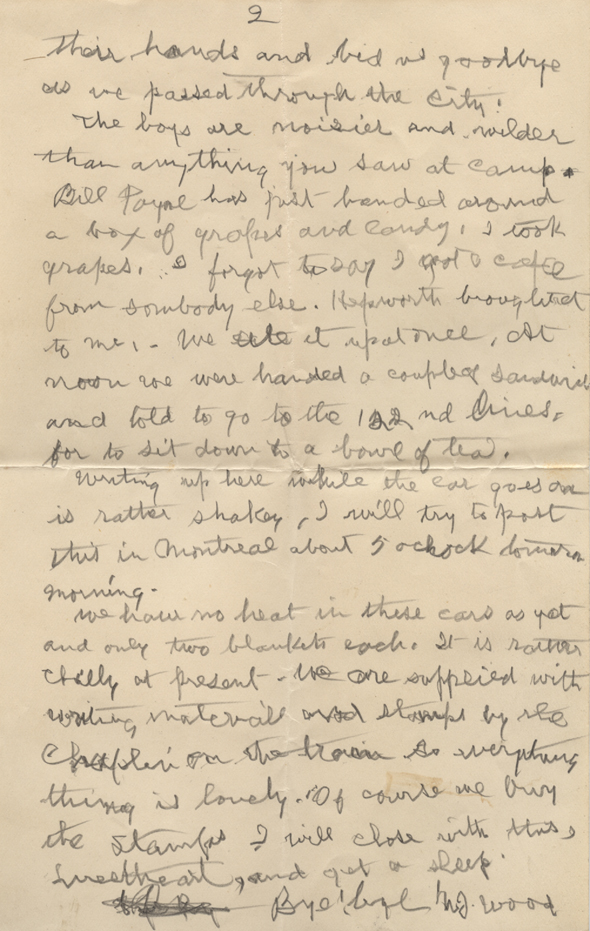 2
their hands and bid us goodbye
as we passed through the City.
The boys are noisier and wilder
than anything you saw at camp.
Bill Payne has just handed around
a box of grapes and candy. I took
grapes. I forgot to say I got a cake
from sombody else. Hepworth brought it
to me. - We ate it up at once. At
noon we were handed a couple of sandwich
and told to go to the 122nd lines.
for to sit down to a bowl of tea.
Writing up here while the car goes on
is rather shakey, I will try to post
this in Montreal about 5 o'clock
morning.
We have no heat in these cars as yet
and only two blankets each. It is rather
chilly at present - We are supplied with
writing material and stamps by the
Chaplin on the train so everything
thing is lovely. Of course we buy
the stamps I will close with this,
Sweetheart, and get a sleep.
Bye! bye! W.J. Wood